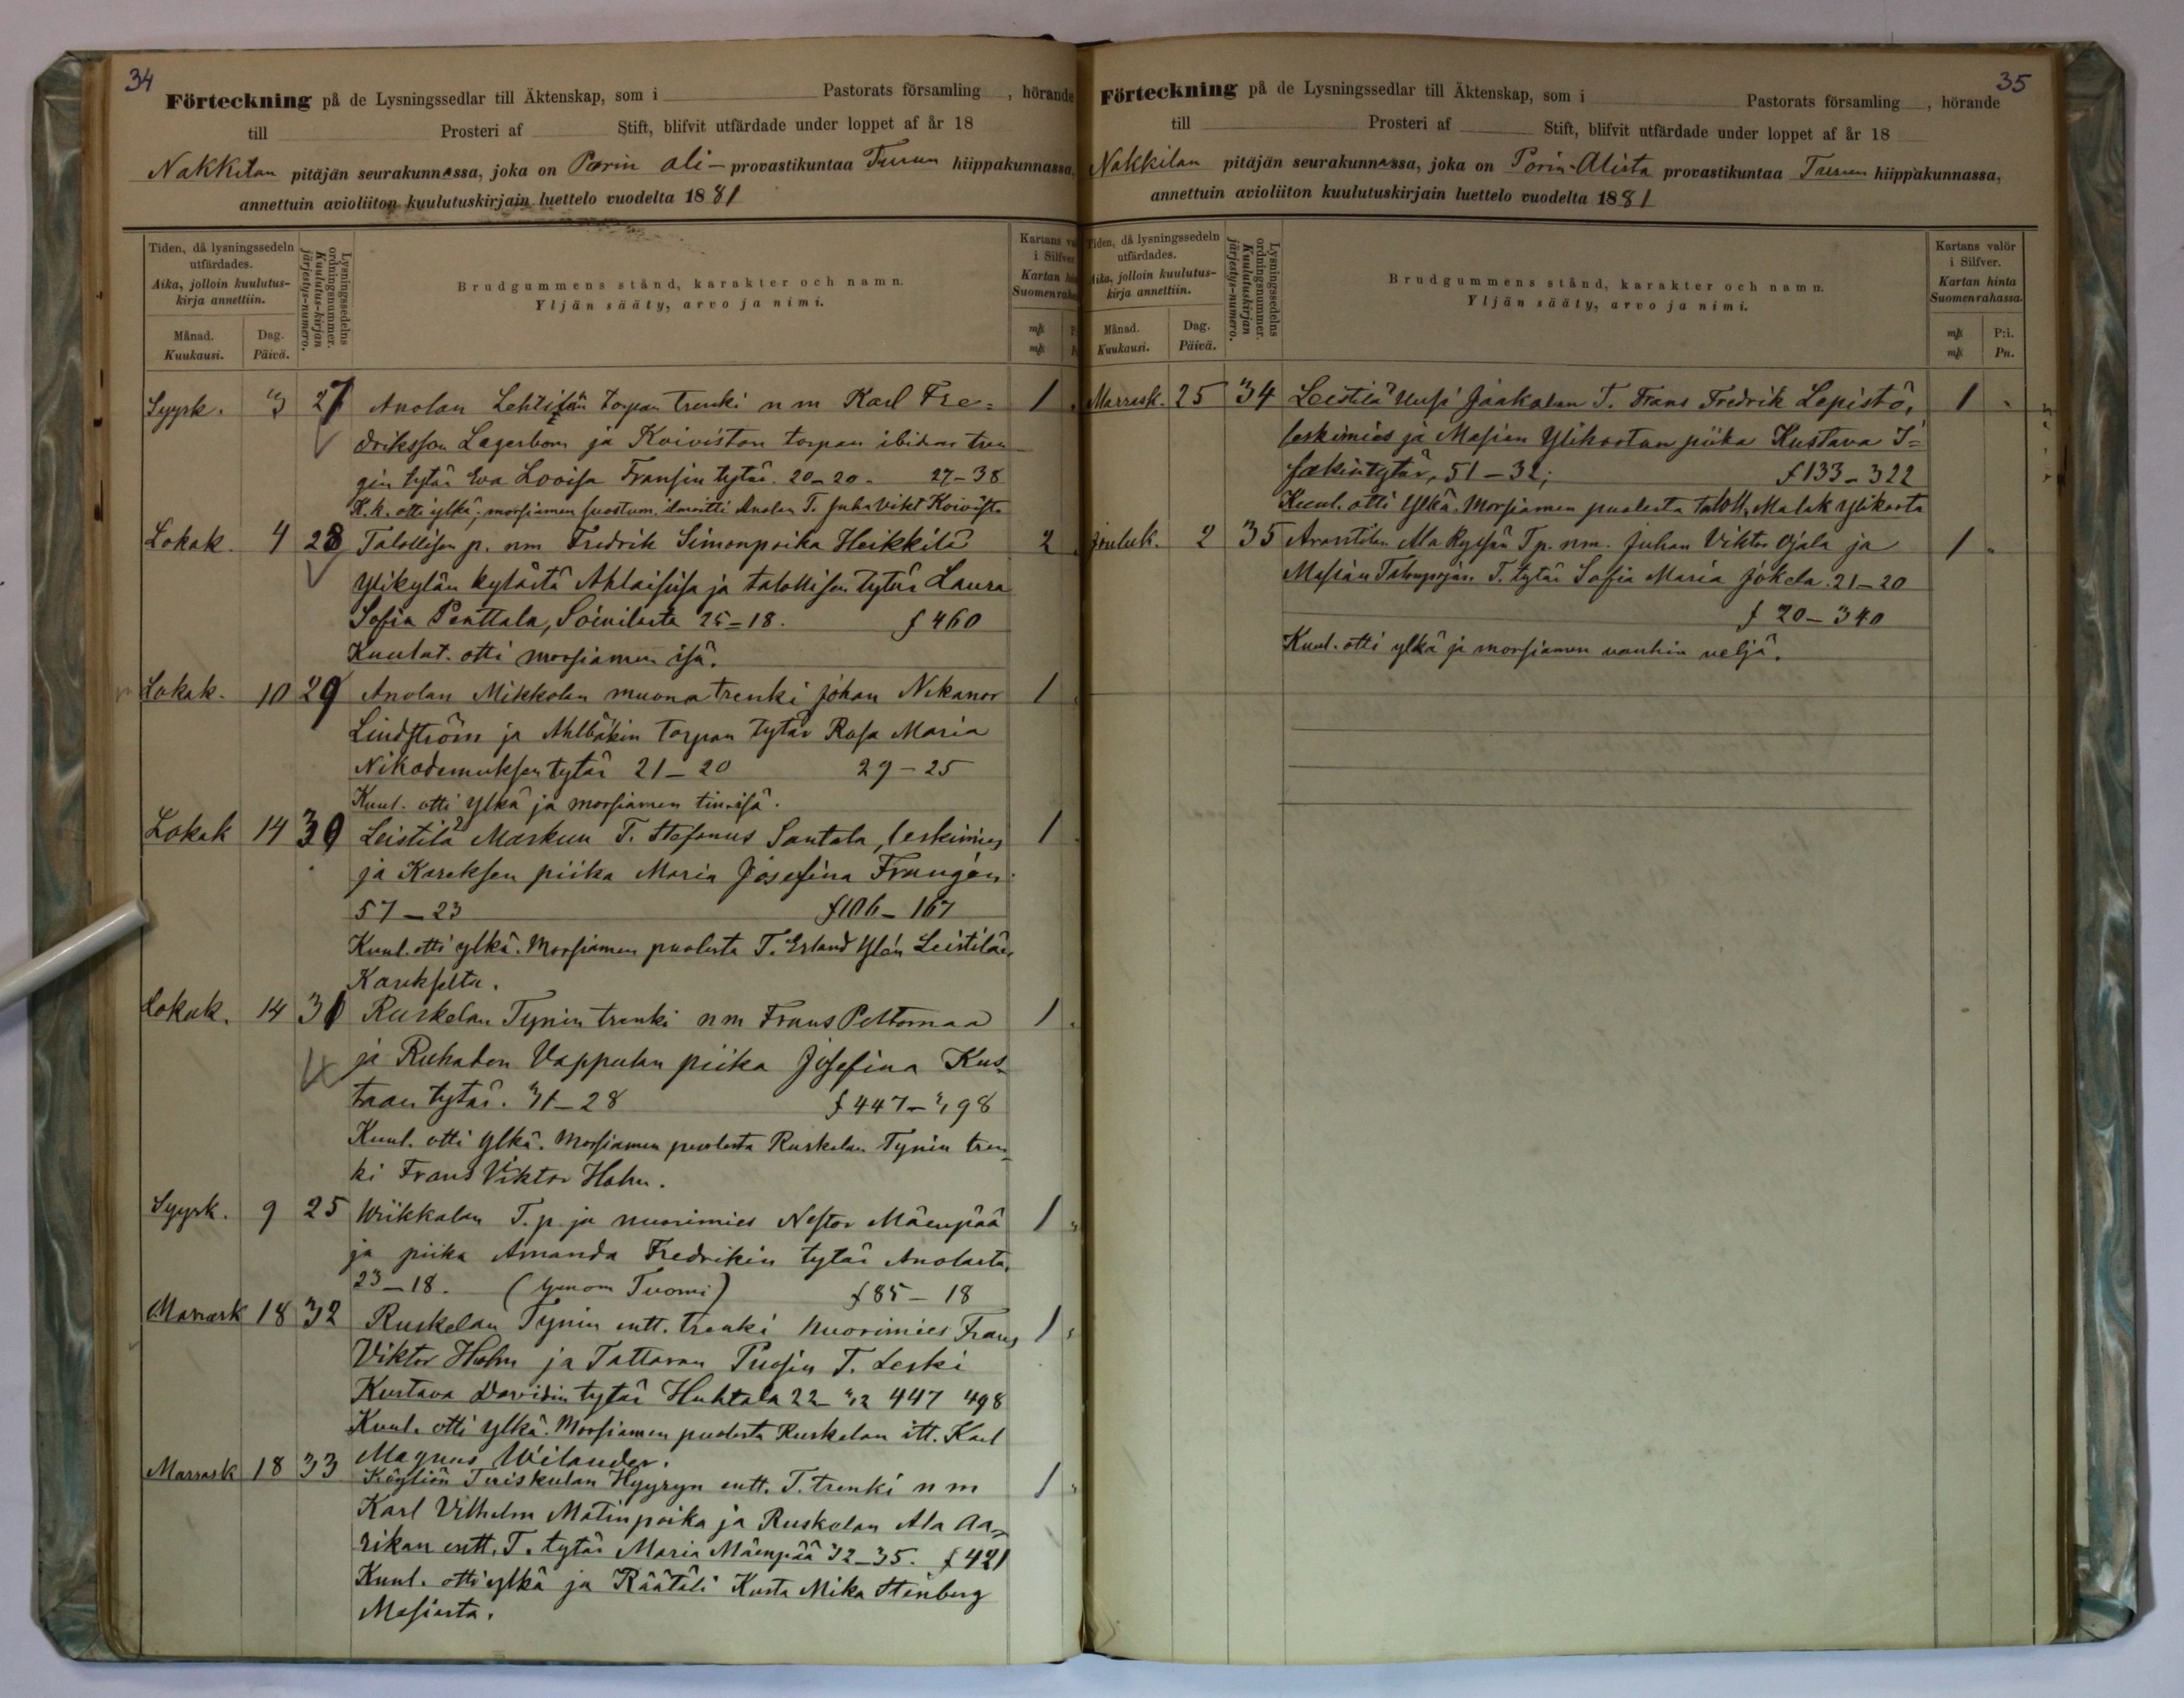 34
Förteckning på de Lysningssedlar till Äktenskap, som i Pastorats församling , hörande
till Prosteri af Stift, blifvit utfärdade under loppet af år 18
Nakkilan pitäjän seurakunnassa, joka on Porin ali- provastikuntaa Turun hiippakunnassa,
annettuin avioliiton kuulutuskirjain luettelo vuodelta 1881
Tiden, då lysningssedeln
utfärdades.
Aika, jolloin kuulutus-
kirja annettiin.
Månad.
Kuukausi.
Dag.
Päivä.
Lysningssedelns
ordningsnummer.
Kuulutus-kirjan
järjestys-numero.
Brudgummens stånd, karakter och namn.
Yljän sääty, arvo ja nimi.
Kartans va
i Silfver
Kartan hin
Suomenraha
mk
mk
Syysk. 3 27 Anolan Lehtisän torpan trenki n m Karl Fre= 1
driksson Lagerbom ja Koiviston torpan ibidem tren
gin tytär Eva Lovisa Fransin tytär. 20-20. 27-38
K.k. otti ylkä; morsiamen suostum. ilmoitti Anolan T. Juha Vikt Koivisto
Lokak. 4 28 Talollisen p. nm Fredrik Simonpoika Heikkilä 2
Ylikylän kylästä Ahlaisissa ja talollisen tytär Laura
Sofia Penttala, Soinilasta 25-18. f 460
Kuulut. otti morsiamen isä.
Lokak. 10 29 Anolan Mikkolan muona trenki Johan Nikanor 1
Lindström ja Ahlbäkin torpan tytär Rosa Maria
Nikodemuksen tytär 21-20 29-25
Kuul. otti ylkä ja morsiamen isä.
Lokak 14 30 Leistilä Markun T. Stefanus Santala, leskimies 1
ja Kareksen piika Maria Josefina Frangén
57-23 f 106-167
Kuul. otti ylkä. Morsiamen puolesta T. Erland Ylén Leistilän
Karekselta.
Lokak. 14 31 Ruskelan Tynin trenki nm Frans Peltomaa 1
ja Ruhaden Vappulan piika Josefina Kus-
taan tytär. 31-28 f 447-398
Kuul. otti ylkä. Morsiamen puolesta Ruskelan Tynin tren
ki Frans Viktor Holm.
Syysk. 9 25 Wiikkalan T. p. ja nuorimies Nestor Mäenpää 1
ja piika Amanda Fredrikin tytär Anolasta,
23-18. (genom Tuomi) f 85-18
Marrask 18 32 Ruskelan Tynin entt. trenki nuorimies Frans 1
Viktor Holm ja Tattaran Puosin T. Leski
Kustava Davidin tytär Huhtala 22-32 447 498
Kuul. otti ylkä. Morsiamen puolesta Ruskelan itt. Karl
Magnus Wilander.
Marrask 18 33 Köyliön Tuiskulan Hyyryn entt. T. trenki n m 1
Karl Vilhelm Matinpoika ja Ruskelan Ala Aa-
rikan entt. T. tytär Maria Mäenpää 32-35. f 421
Kuul. otti ylkä ja Räätäli Kusta Mika Stenberg
Masiasta.
35
Förteckning på de Lysningssedlar till Äktenskap, som i Pastorats församling , hörande
till Prosteri af Stift, blifvit utfärdade under loppet af år 18
Nakkilan pitäjän seurakunnassa, joka on Porin-Alista provastikuntaa Turun hiippakunnassa,
annettuin avioliiton kuulutuskirjain luettelo vuodelta 1881
Tiden, då lysningssedeln
utfärdades.
Aika, jolloin kuulutus-
kirja annettiin.
Månad.
Kuukausi.
Dag.
Päivä.
Lysningssedelns
ordningsnummer.
Kuulutuskirjan
järjestys-numero.
Brudgummens stånd, karakter och namn.
Yljän sääty, arvo ja nimi.
Kartans valör
i Silfver.
Kartan hinta
Suomenrahassa.
mk P:i.
mk Pn.
Marrask. 25 34 Leistilä Uusi Jaakolan T. Frans Fredrik Lepistö, 1
leskimies ja Masian Ylikartan piika Kustava I=
sakintytär, 51-32; f 133-322
Kuul. otti ylkä. Morsiamen puolesta taloll. Malak Ylikarta
Jouluk. 2 35 Arantilan Ala Rysän T p. nm. Juhan Viktor Ojala ja 1
Masian Talonpojan T. tytär Sofia Maria Jokela. 21-20
f 20-340
Kuul. otti ylkä ja morsiamen vanhin veljä.